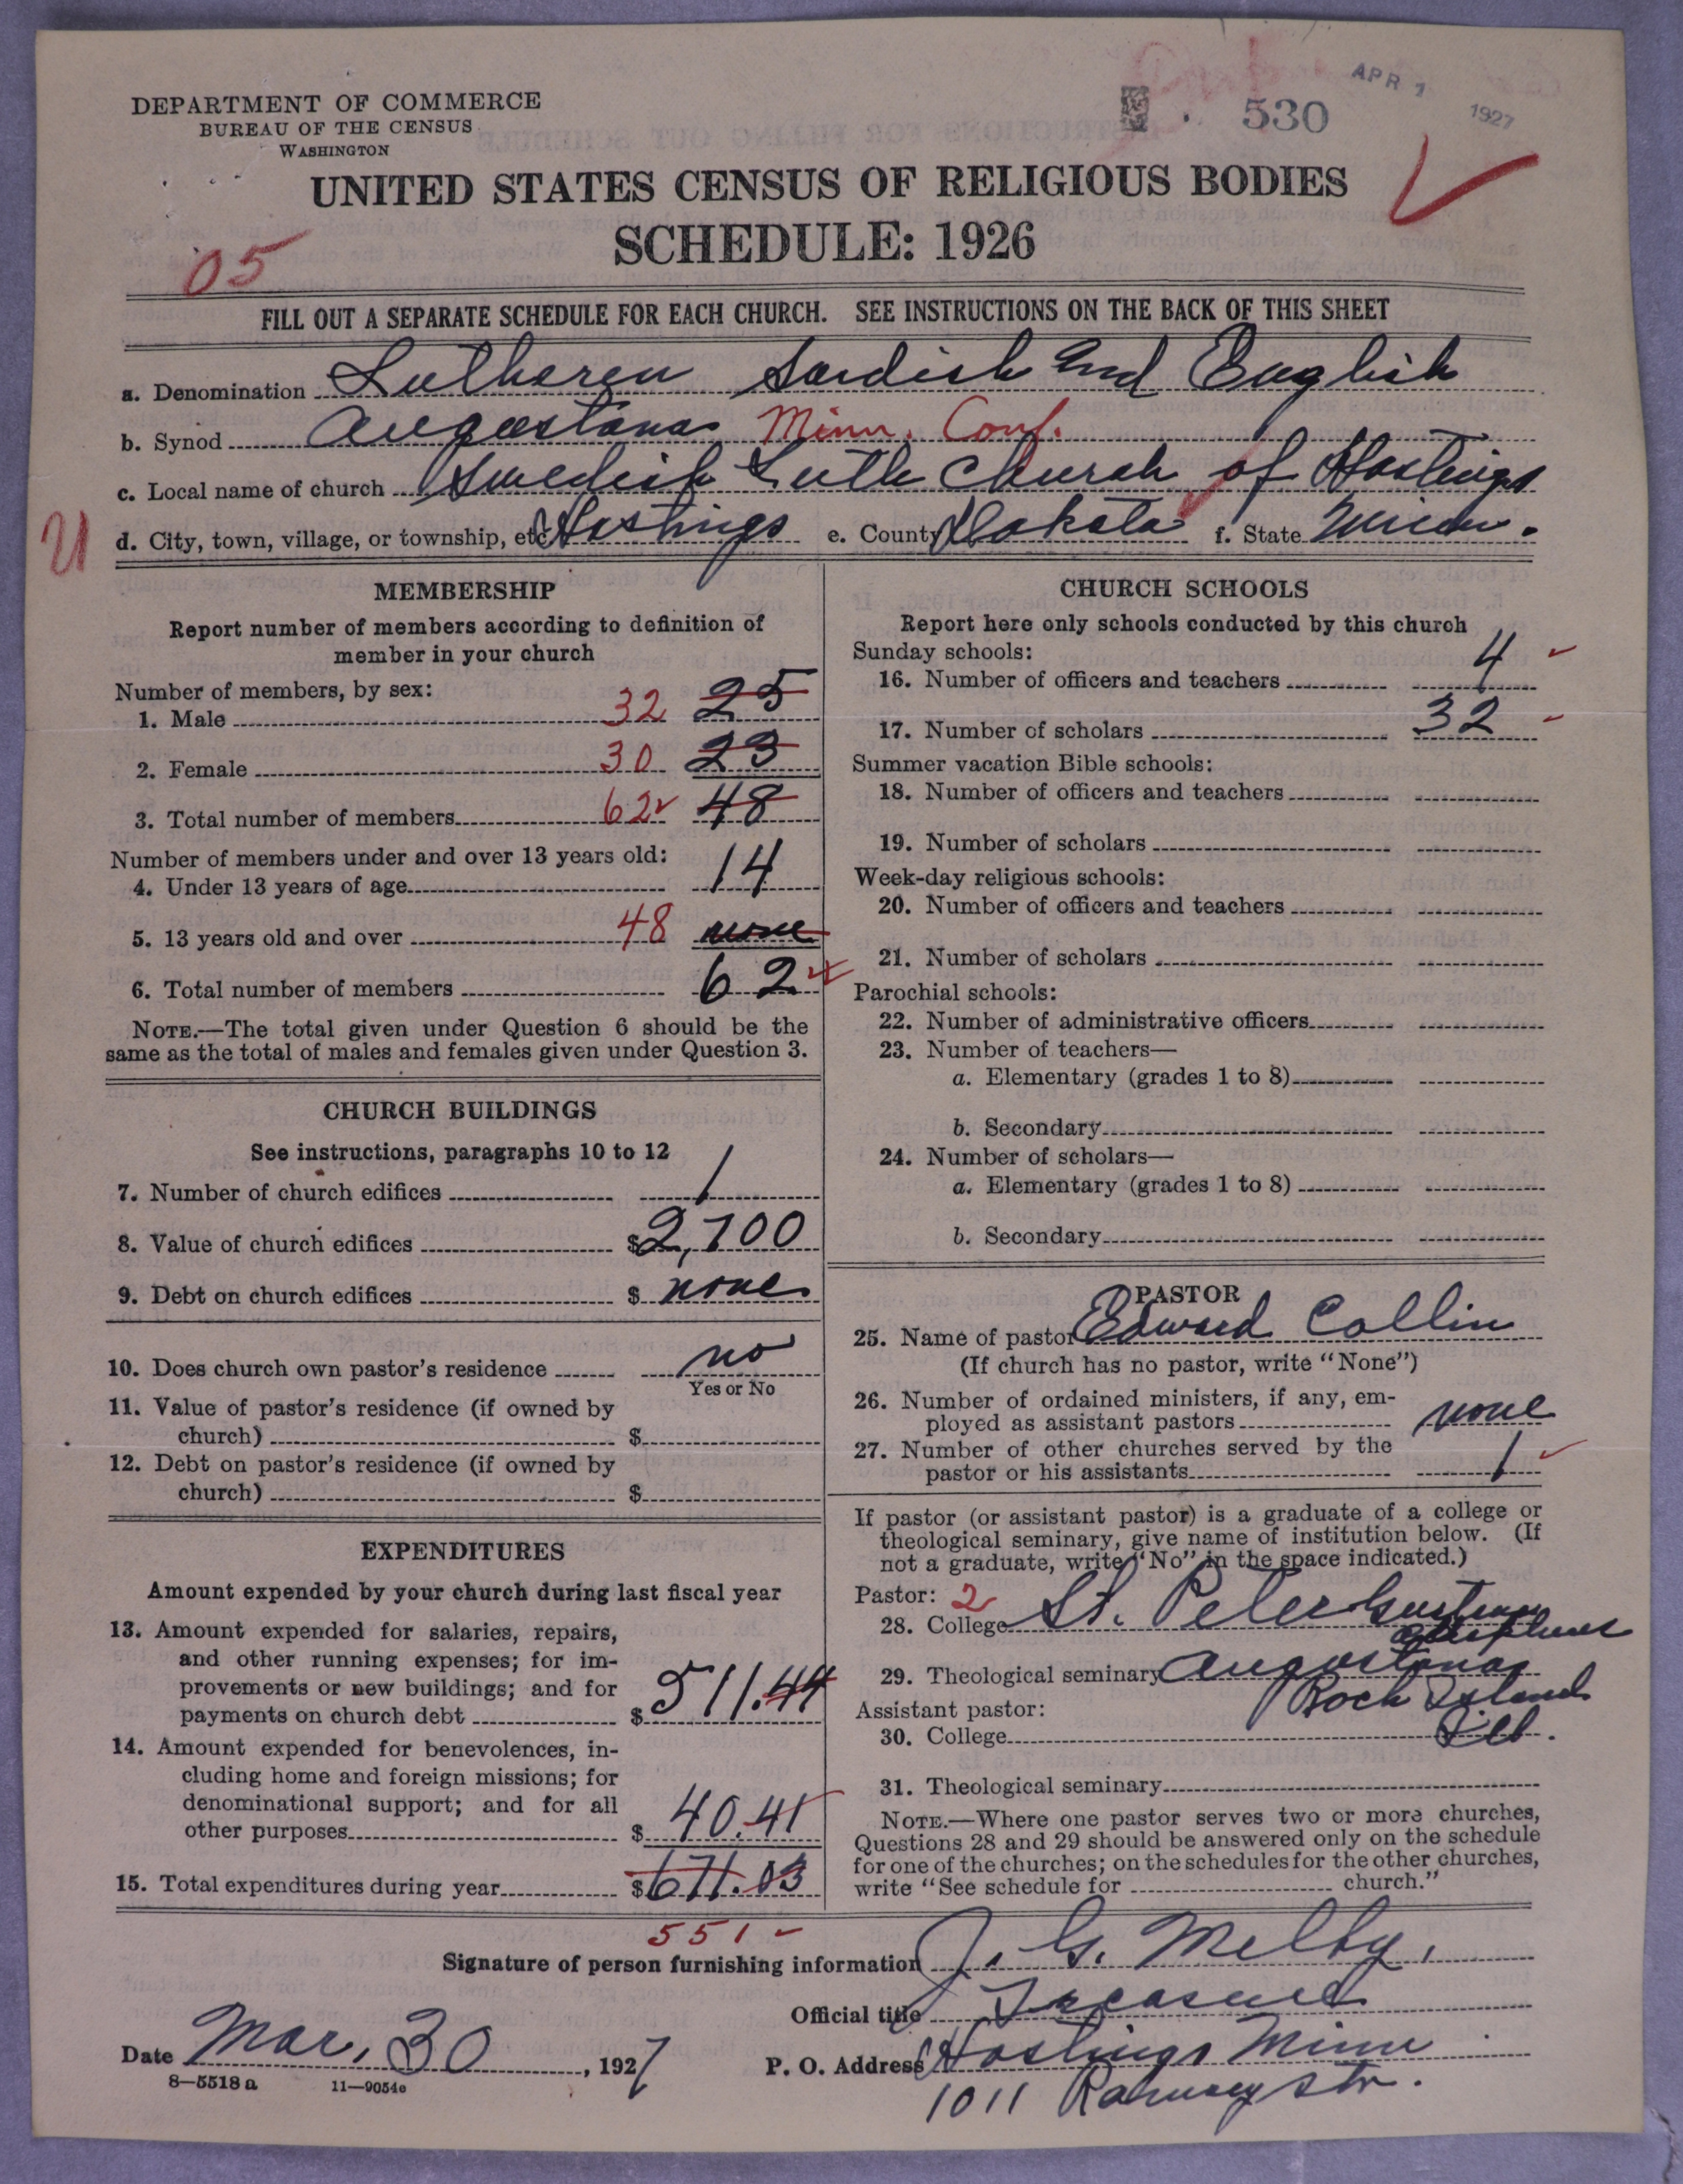 DEPARTMENT OF COMMERCE
BUREAU OF THE CENSUS
WASHINGTON
530
APR 1 1927
UNITED STATES CENSUS OF RELIGIOUS BODIES
SCHEDULE: 1926
05
FILL OUT A SEPARATE SCHEDULE FOR EACH CHURCH. SEE INSTRUCTIONS ON THE BACK OF THIS SHEET
a. Denomination Lutheren Swedish and English
b. Synod Augustana Minn. Conf.
c. Local name of church Swedish Luth Church of Hastings
d. City, town, village, or township, etc. Hastings e. County Dakota f. State Minn.
U
MEMBERSHIP
Report number of members according to definition of
member in your church
Number of members, by sex:
1. Male 32 25
2. Female 30 23
3. Total number of members 62 48
Number of members under and over 13 years old:
4. Under 13 years of age 14
5. 13 years old and over 48 none
6. Total number of members 62
NOTE.—The total given under Question 6 should be the
same as the total of males and females given under Question 3.
CHURCH BUILDINGS
See instructions, paragraphs 10 to 12
7. Number of church edifices 1
8. Value of church edifices $2,700
9. Debt on church edifices $ none
10. Does church own pastor's residence no
Yes or No
11. Value of pastor's residence (if owned by
church) $
12. Debt on pastor's residence (if owned by
church) $
EXPENDITURES
Amount expended by your church during last fiscal year
13. Amount expended for salaries, repairs,
and other running expenses; for im-
provements or new buildings; and for
payments on church debt $ 511.44
14. Amount expended for benevolences, in-
cluding home and foreign missions; for
denominational support; and for all
other purposes $ 40.41
15. Total expenditures during year $671.03
551
CHURCH SCHOOLS
Report here only schools conducted by this church
Sunday schools:
16. Number of officers and teachers 4
17. Number of scholars 32
Summer vacation Bible schools:
18. Number of officers and teachers
19. Number of scholars
Week-day religious schools:
20. Number of officers and teachers
21. Number of scholars
Parochial schools:
22. Number of administrative officers
23. Number of teachers—
a. Elementary (grades 1 to 8)
b. Secondary
24. Number of scholars—
a. Elementary (grades 1 to 8)
b. Secondary
PASTOR
25. Name of pastor Edward Collin
(If church has no pastor, write "None")
26. Number of ordained ministers, if any, em-
ployed as assistant pastors none
27. Number of other churches served by the
pastor or his assistants 1
If pastor (or assistant pastor) is a graduate of a college or
theological seminary, give name of institution below. (If
not a graduate, write "No" in the space indicated.)
Pastor: 2
28. College St. Peter Gustavus
Adolphus
29. Theological seminary Augustana
Rock Island
Assistant pastor:
30. College Ill.
31. Theological seminary
NOTE.—Where one pastor serves two or more churches,
Questions 28 and 29 should be answered only on the schedule
for one of the churches; on the schedules for the other churches,
write "See schedule for church."
Signature of person furnishing information J. G. Melby.
Official title Treasurer
Date Mar. 30, 1927
P. O. Address Hastings Minn
1011 Ramsey str.
8—5518 a 11—9054e